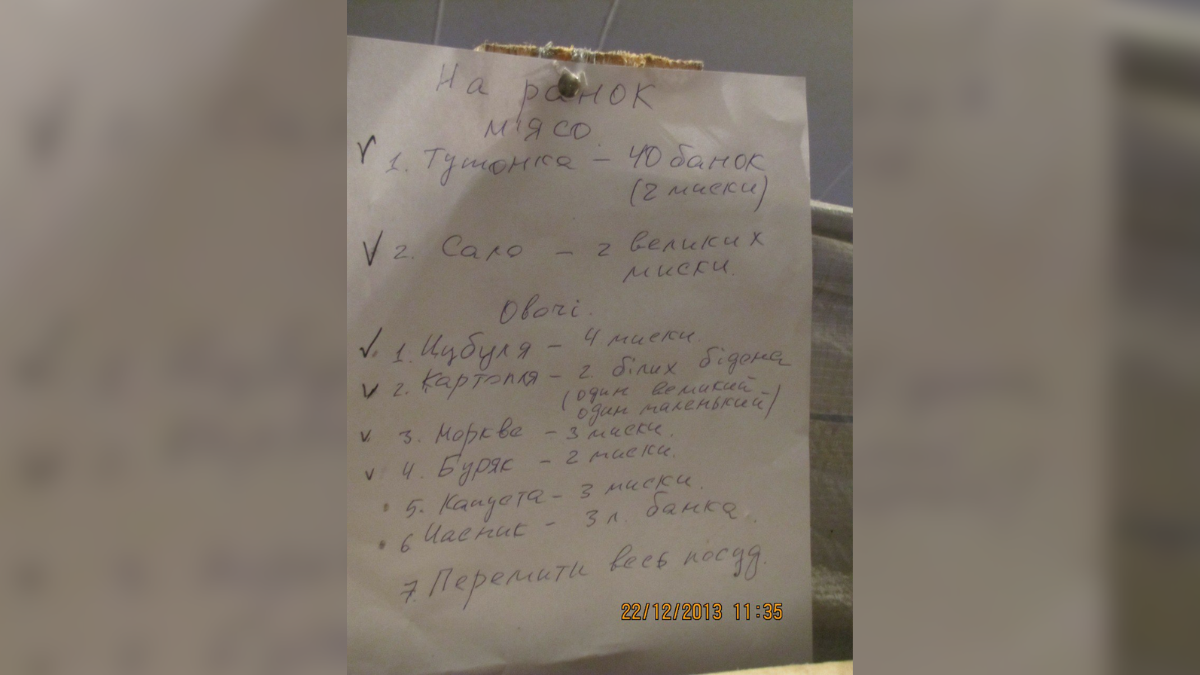 На ранок
м'ясо.
✓ 1. Тушонка – 40 банок
(2 миски)
✓ 2. Сало – 2 великих
миски.
Овочі.
✓ 1. Цибуля – 4 миски.
✓ 2. Картопля – 2 білих бідона
(один великий
один маленький)
✓ 3. Морква – 3 миски.
✓ 4. Буряк – 2 миски.
5. Капуста – 3 миски.
6 Часник – 3 л. банка.
7. Перемити весь посуд.
22/12/2013 11:35